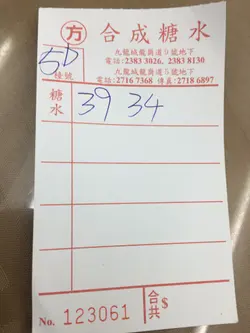 方 合成糖水
九龍城龍崗道9號地下
電話:2383 3026, 2383 8130
九龍城龍崗道5號地下
電話:2716 7368 傳真:2718 6897
5D
檯號
糖水 39 34
合共 $
No. 123061